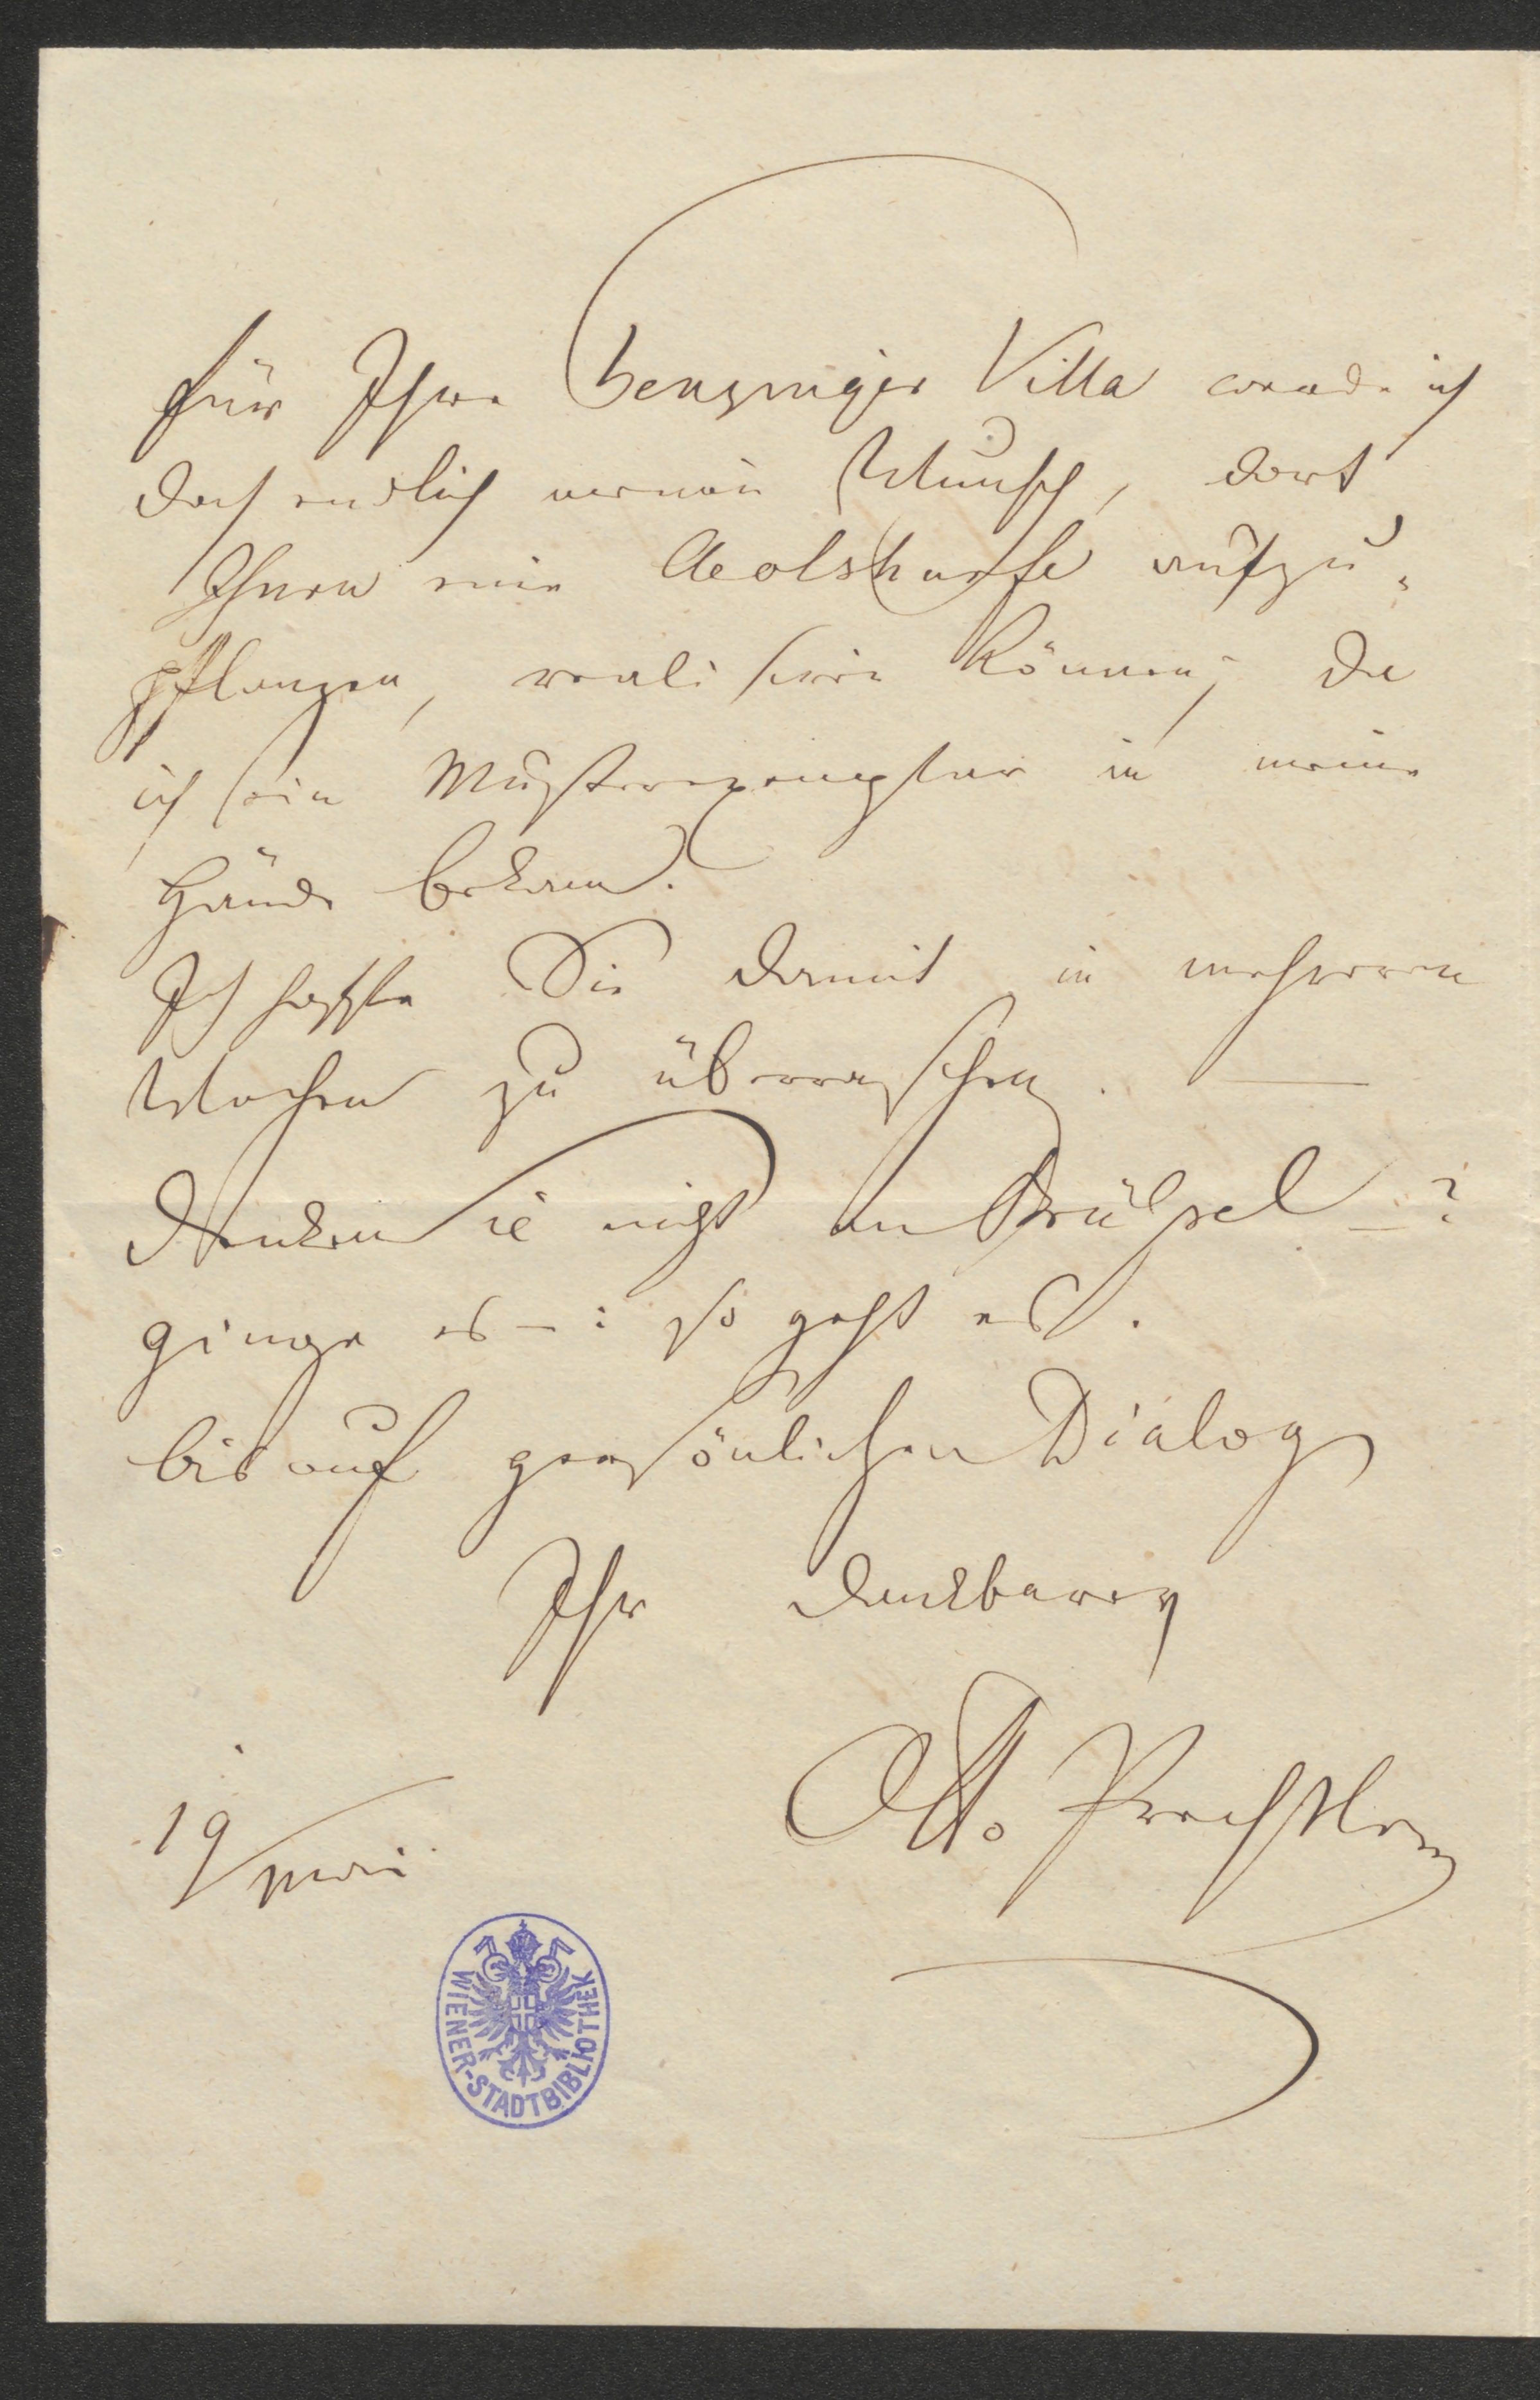 Für Ihre Penzinger Villa werde ich
doch endlich meinen Wunsch, dort
Ihnen eine Aeolsharfe aufzu-
pflanzen, realisiren können; da
ich ein Musterexemplar in meine
Hände bekam.
Ich hoffe Sie damit in mehreren
Wochen zu überraschen. —
Denken Sie nicht an Brüssel –?
ginge es – : so geht es.
bis auf persönlichen Dialog
Ihr dankbarer
Otto Prechtler
19/Mai
WIENER-STADTBIBLIOTHEK